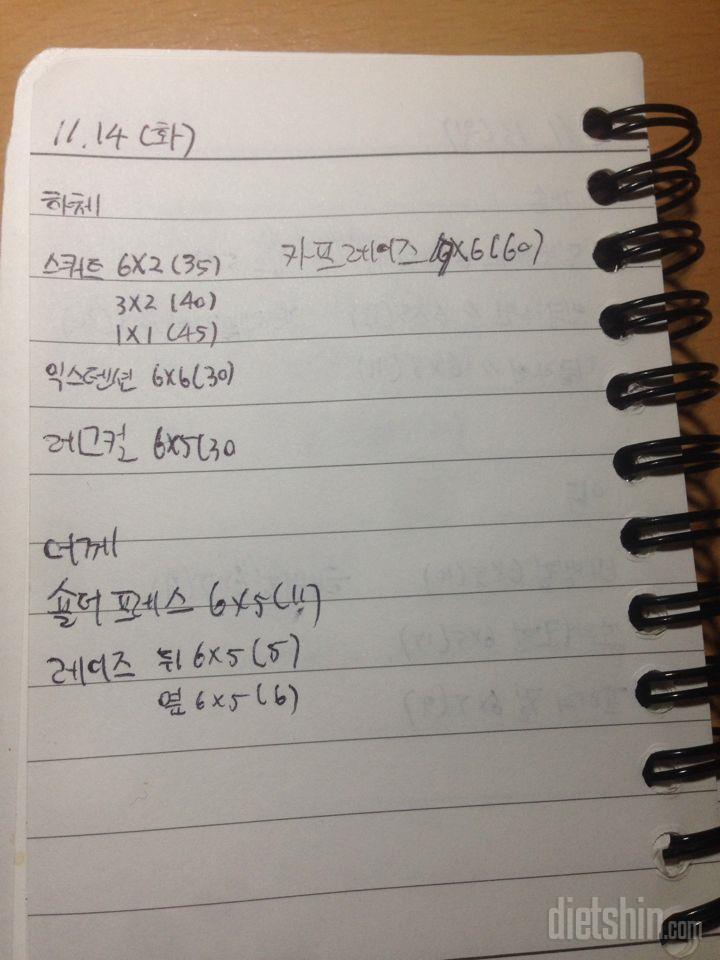 11.14 (화)
하체
스쿼트 6X2 (35) 카프레이즈 X6(60)
3X2 (40)
1X1 (45)
익스텐션 6X6(30)
레그컬 6X5(30
어깨
숄더 프레스 6X5(11)
레이즈 뒤 6X5(5)
옆 6X5(6)
dietshin.com